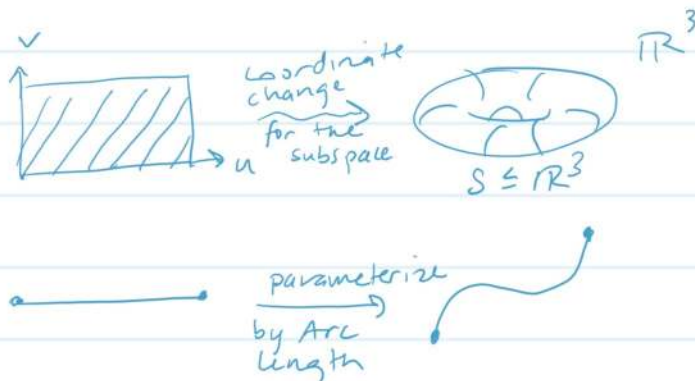 ℝ³
v
coordinate
change
for the
subspace
u
S ≤ ℝ³
parameterize
by Arc
length